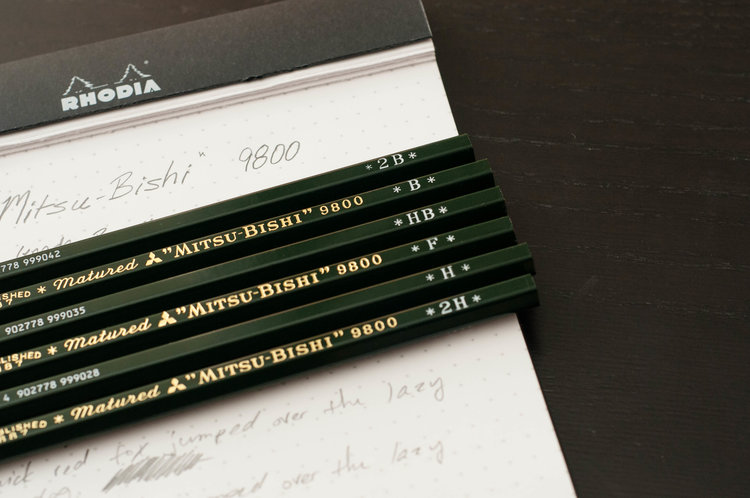 RHODIA
Mitsu-Bishi" 9800
778 999042 *2B*
* Matured "MITSU-BISHI" 9800 *B*
902778 999035 *HB*
LISHED * Matured "MITSU-BISHI" 9800 *F*
4 902778 999028 *H*
LISHED * Matured "MITSU-BISHI" 9800 *2H*
red fox jumped over the lazy
over the lazy